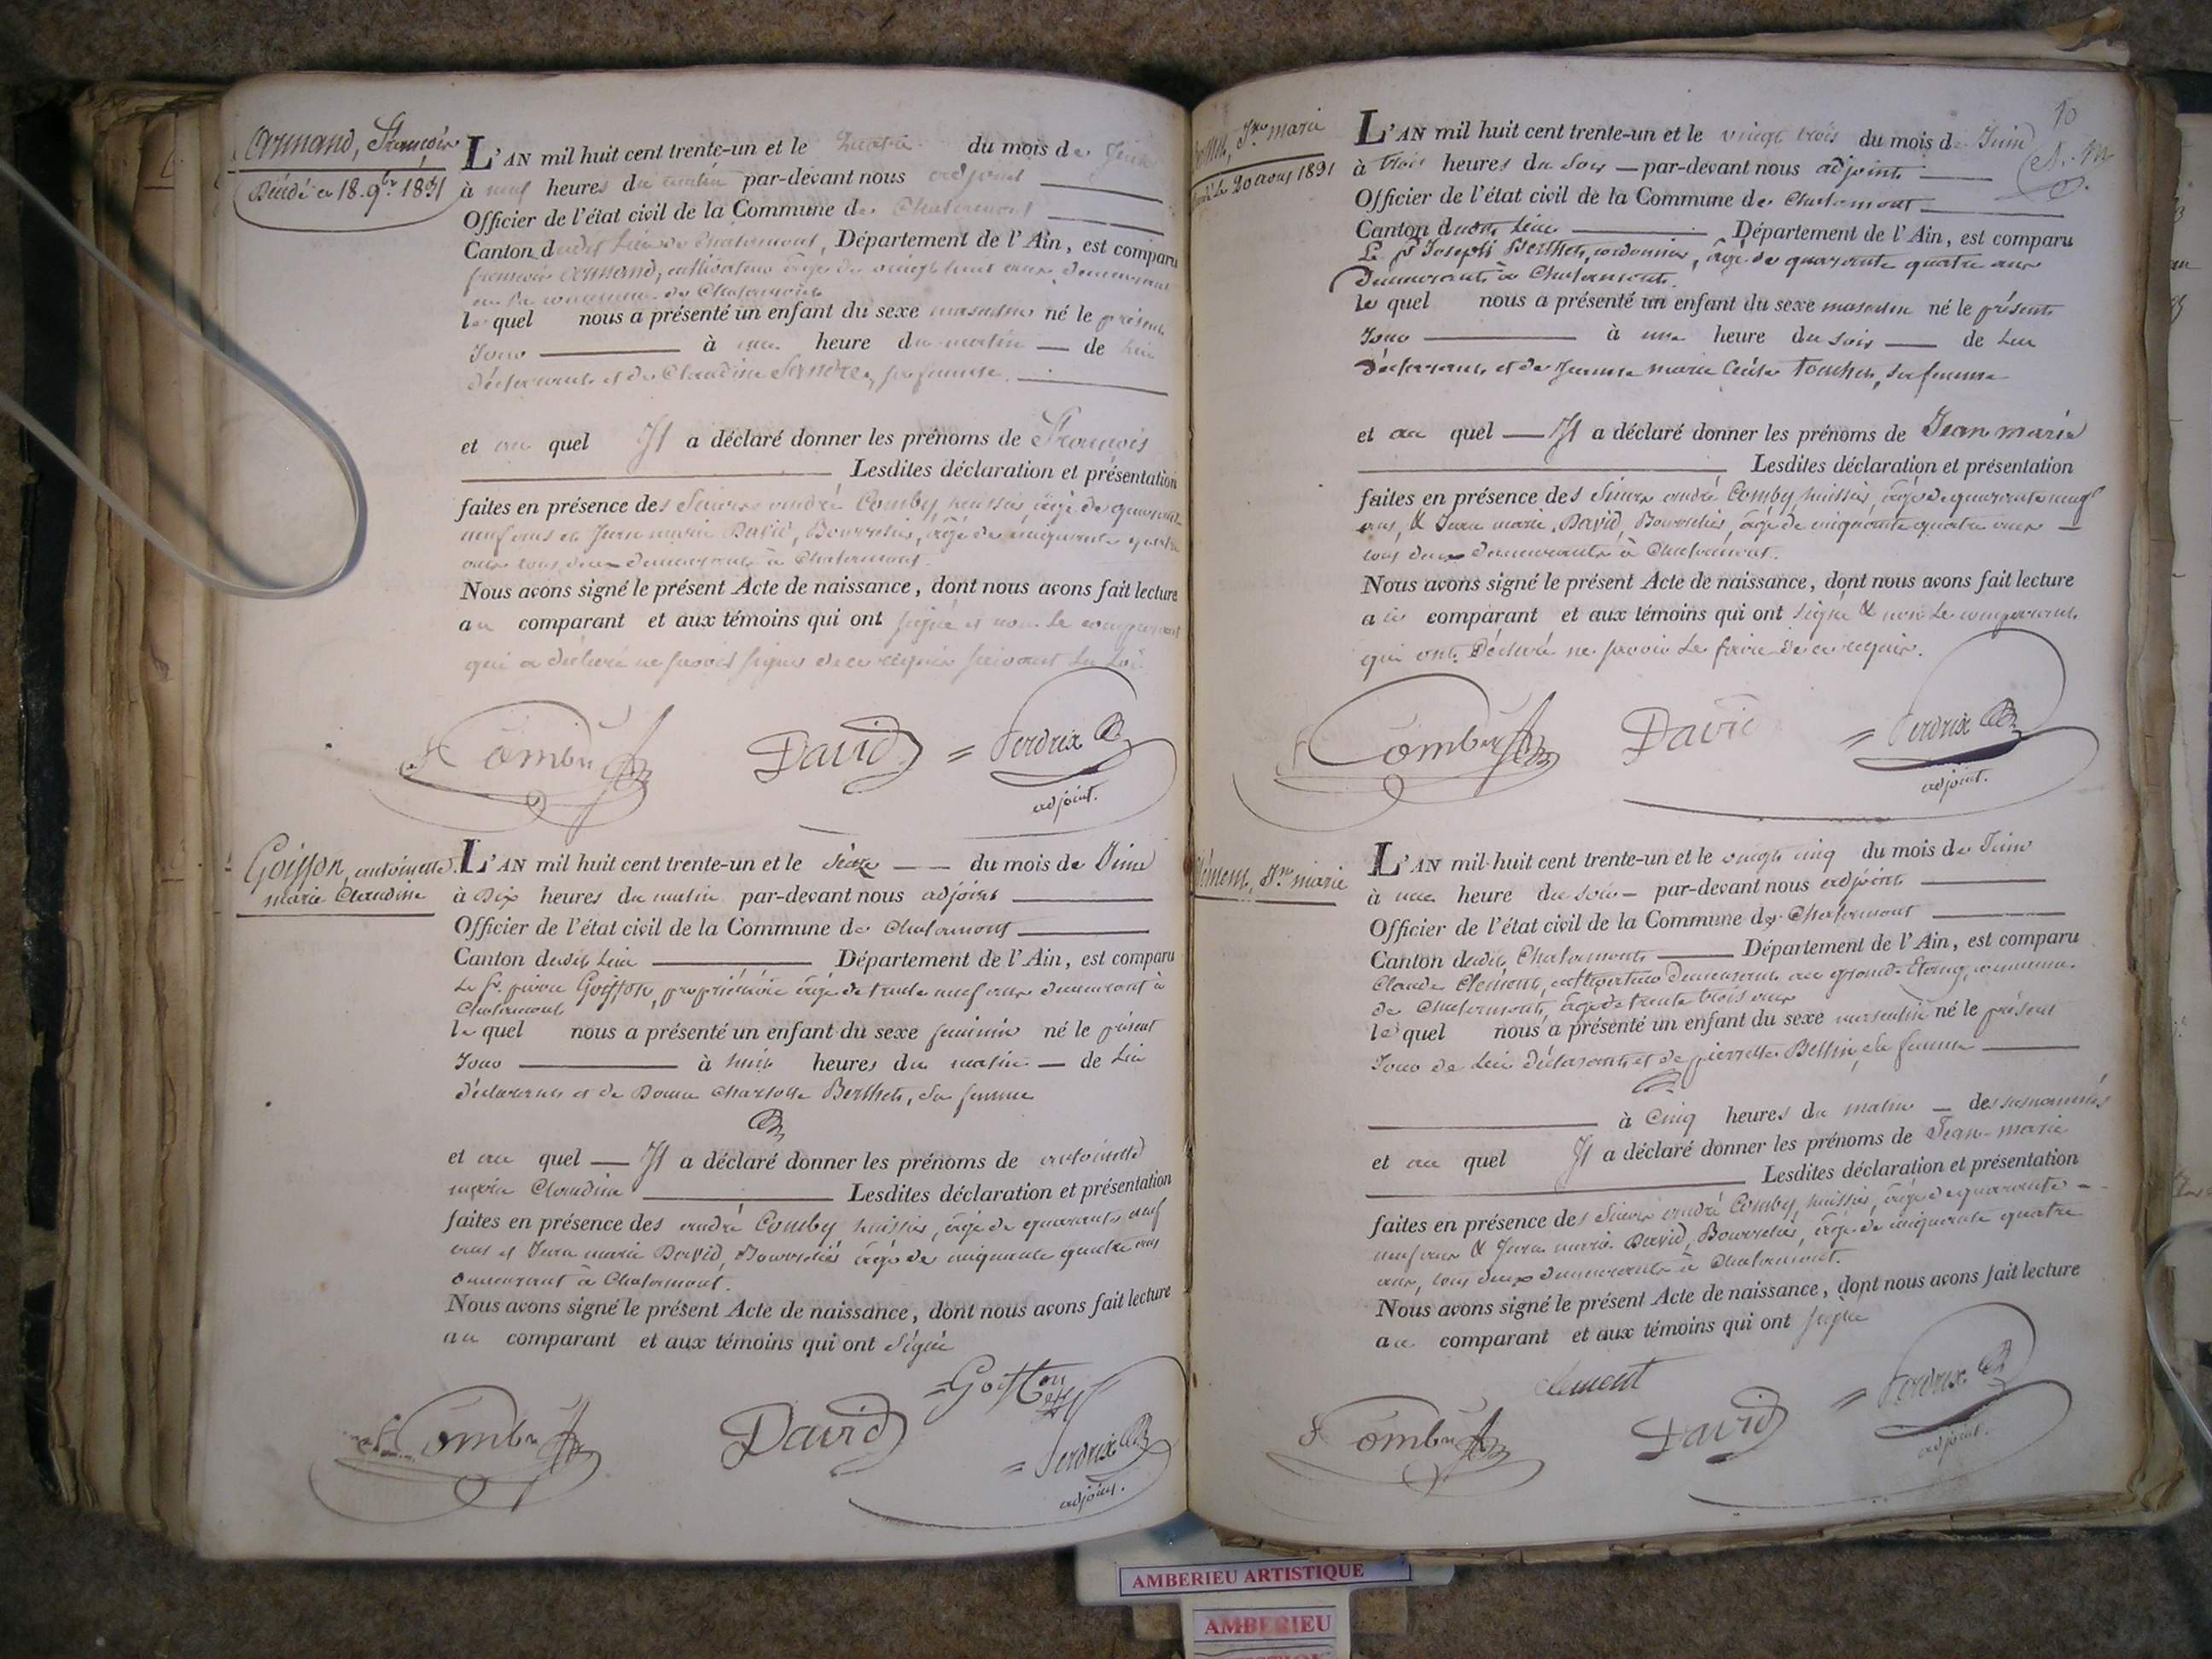 Armand, François
Décédé le 18. 9bre 1831
L'AN mil huit cent trente-un et le quatre du mois de Juin
à neuf heures du matin par-devant nous adjoint
Officier de l'état civil de la Commune de Chalamont
Canton dudit lieu de Chalamont, Département de l'Ain, est comparu
françois Armand, cultivateur âgé de vingt huit ans demeurant
en la commune de Chalamont
le quel nous a présenté un enfant du sexe masculin né le présent
Jour à une heure du matin de lui
déclarant et de Claudine sa femme
et au quel Il a déclaré donner les prénoms de François
Lesdites déclaration et présentation
faites en présence des Sieurs andré Comby, huissier, âgé de quarante
neuf ans et Jean marie David, Bourrelier, âgé de cinquante quatre
ans tous deux demeurants à Chalamont.
Nous avons signé le présent Acte de naissance, dont nous avons fait lecture
au comparant et aux témoins qui ont signé et non le comparant
qui a déclaré ne savoir signer de ce requis suivant la Loi.
Comby David Perdrix
adjoint.
Goiffon, antoinette
marie Claudine
L'AN mil huit cent trente-un et le seize du mois de Juin
à Dix heures du matin par-devant nous adjoint
Officier de l'état civil de la Commune de Chalamont
Canton dudit lieu Département de l'Ain, est comparu
Le Sr. pierre Goiffon, propriétaire âgé de trente neuf ans demeurant à
Chalamont
le quel nous a présenté un enfant du sexe feminin né le présent
Jour à huit heures du matin de lui
déclarant et de Dame Charlotte Berthet, sa femme
et au quel Il a déclaré donner les prénoms de antoinette
marie Claudine Lesdites déclaration et présentation
faites en présence des andré Comby huissier, âgé de quarante neuf
ans et Jean marie David, Bourrelier âgé de cinquante quatre ans
demeurant à Chalamont.
Nous avons signé le présent Acte de naissance, dont nous avons fait lecture
au comparant et aux témoins qui ont signé
Goiffon
Comby David Perdrix
adjoint.
10
Jn marie
20 aout 1831
L'AN mil huit cent trente-un et le vingt trois du mois de Juin
à trois heures du soir par-devant nous adjoint
Officier de l'état civil de la Commune de Chalamont
Canton dudit lieu Département de l'Ain, est comparu
Le Sr Joseph Berthet, cordonnier, âgé de quarante quatre ans
Demeurant à Chalamont.
le quel nous a présenté un enfant du sexe masculin né le présent
Jour à une heure du soir de lui
Déclarant et de Jeanne marie Cécile sa femme
et au quel Il a déclaré donner les prénoms de Jean marie
Lesdites déclaration et présentation
faites en présence des Sieurs andré Comby, huissier, âgé de quarante neuf
ans, & Jean marie David, Bourrelier, âgé de cinquante quatre ans
tous deux demeurants à Chalamont.
Nous avons signé le présent Acte de naissance, dont nous avons fait lecture
au comparant et aux témoins qui ont signé & non le comparant
qui ont Déclaré ne savoir le faire de ce requis.
Comby David Perdrix
adjoint.
Clément, Jn marie
L'AN mil huit cent trente-un et le vingt cinq du mois de Juin
à une heure du soir par-devant nous adjoint
Officier de l'état civil de la Commune de Chalamont
Canton dudit Chalamont Département de l'Ain, est comparu
Claude Clément, cultivateur demeurant au grand Etang, commune
de Chalamont, âgé de trente trois ans
le quel nous a présenté un enfant du sexe masculin né le présent
Jour de lui déclarant et de pierrette Bellin sa femme
à Cinq heures du matin des susnommés
et au quel Il a déclaré donner les prénoms de Jean-marie
Lesdites déclaration et présentation
faites en présence des Sieurs andré Comby, huissier, âgé de quarante
neuf ans & Jean marie David, Bourrelier, âgé de cinquante quatre
ans, tous deux demeurants à Chalamont.
Nous avons signé le présent Acte de naissance, dont nous avons fait lecture
au comparant et aux témoins qui ont signé
Clement
Comby David Perdrix
adjoint.
AMBERIEU ARTISTIQUE
AMBERIEU